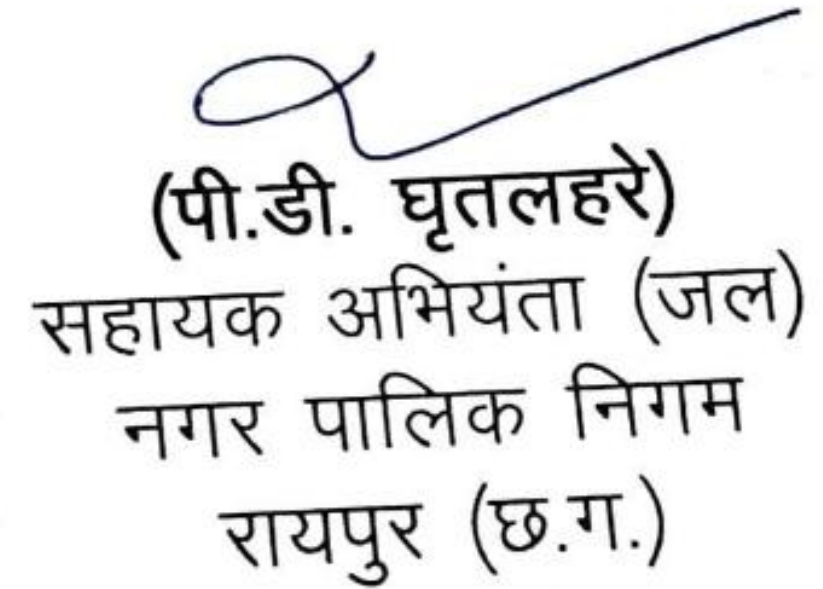 (पी.डी. घृतलहरे)
सहायक अभियंता (जल)
नगर पालिक निगम
रायपुर (छ.ग.)